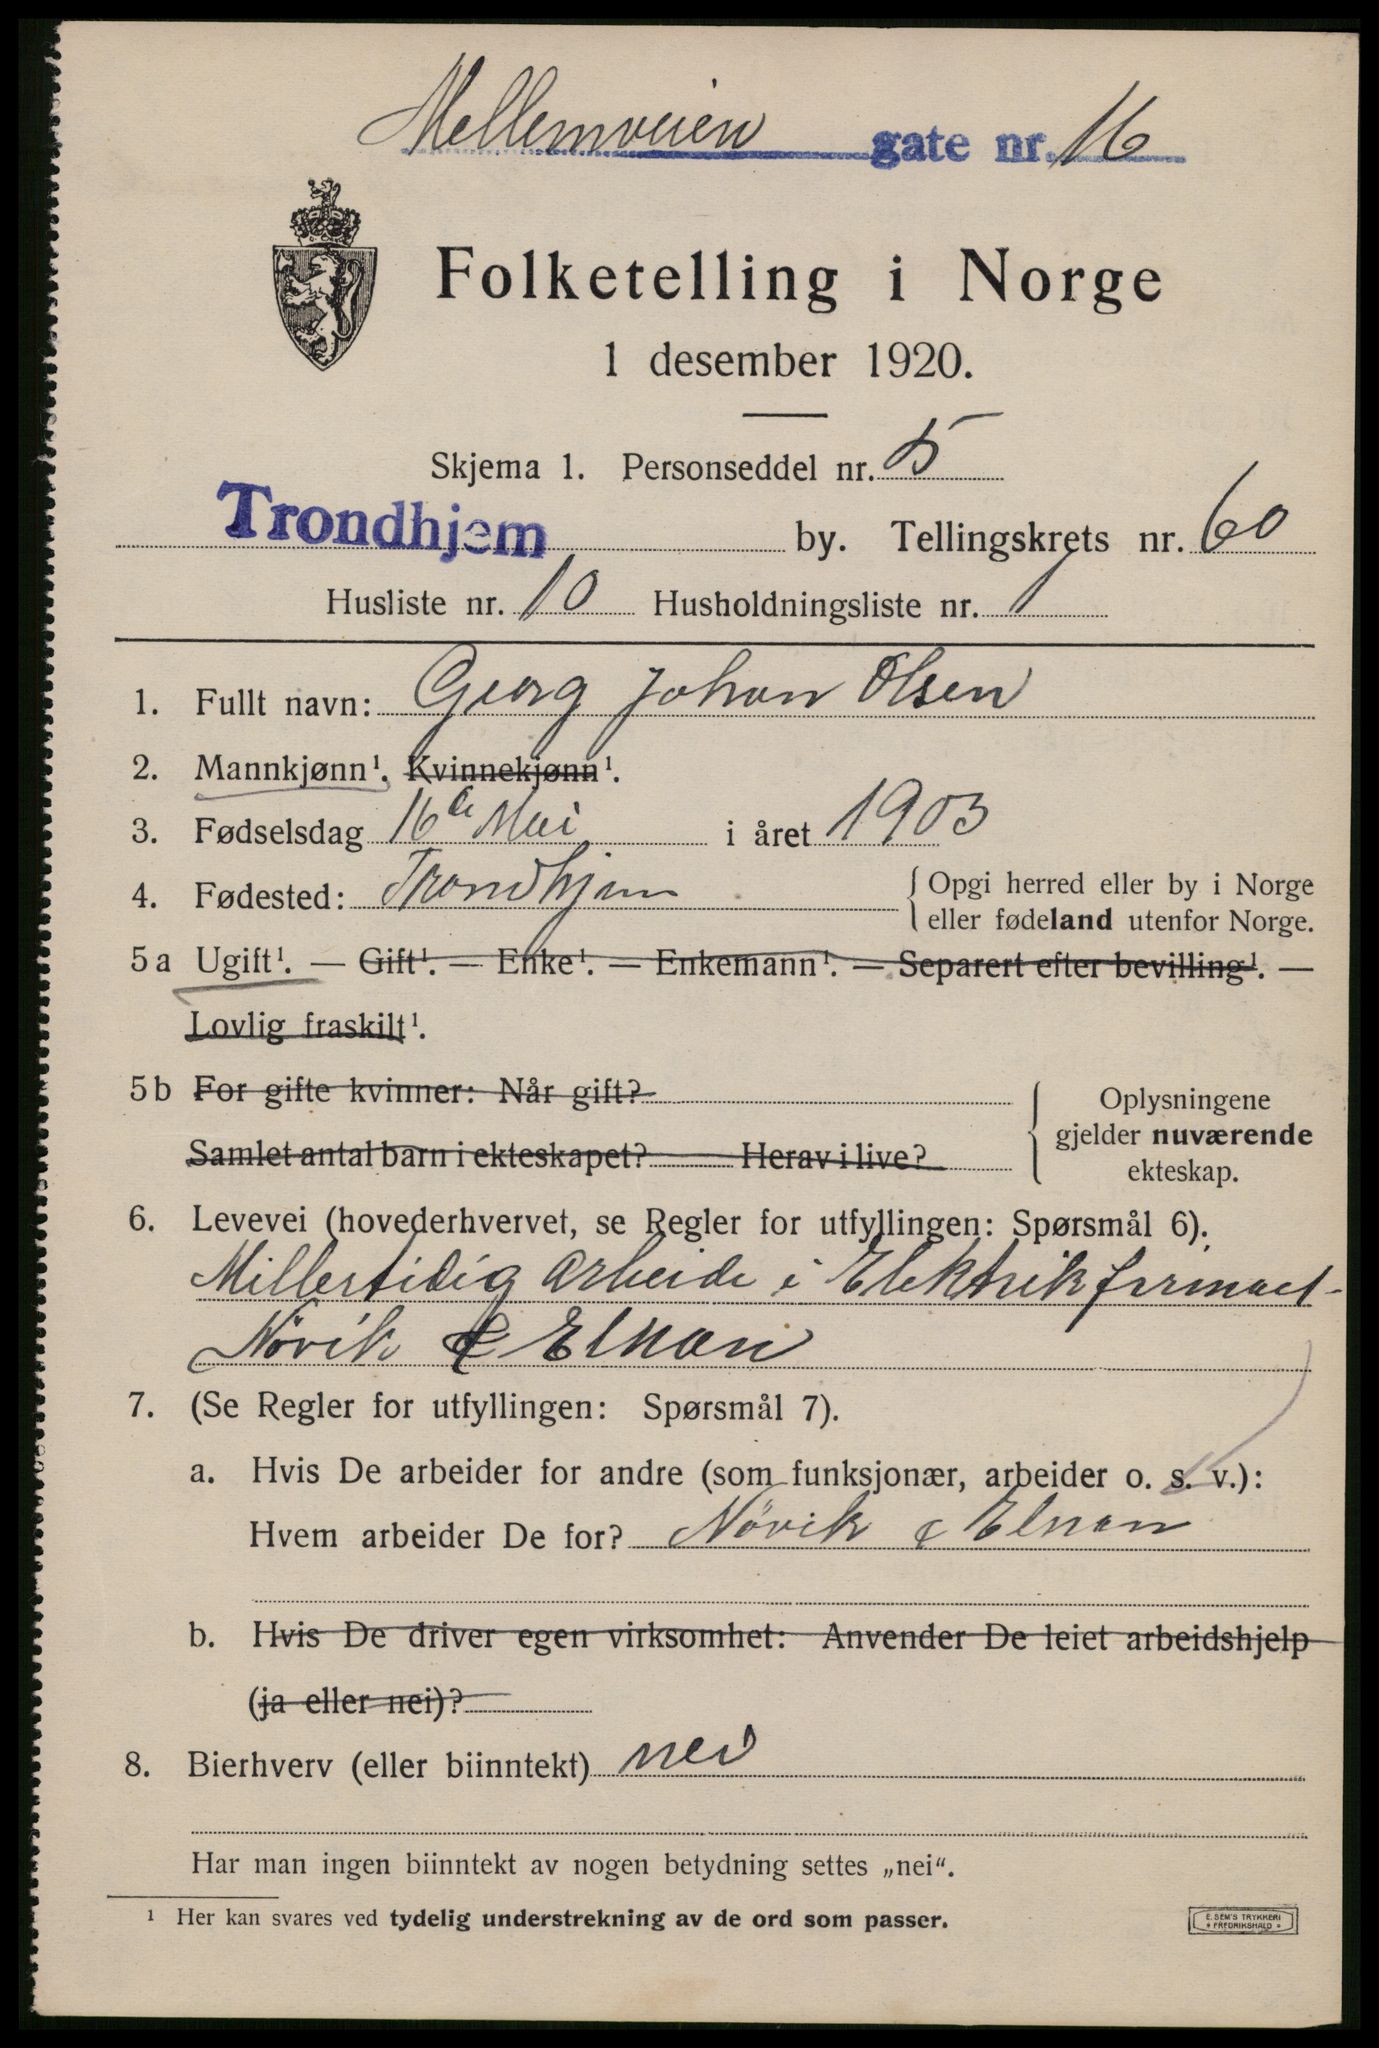 Mellemveien gate nr. 16
Folketelling i Norge
1 desember 1920.
Skjema 1. Personseddel nr. 5
Trondhjem by. Tellingskrets nr. 60
Husliste nr. 10 Husholdningsliste nr. 1
1. Fullt navn: Georg Johan Olsen
2. Mannkjønn¹. Kvinnekjønn¹.
3. Fødselsdag 16de Mai i året 1903
4. Fødested: Trondhjem { Opgi herred eller by i Norge
eller fødeland utenfor Norge.
5a Ugift¹. — Gift¹. — Enke¹. — Enkemann¹. — Separert efter bevilling¹. —
Lovlig fraskilt¹.
5b For gifte kvinner: Når gift? { Oplysningene
gjelder nuværende
Samlet antal barn i ekteskapet? Herav i live?
ekteskap.
6. Levevei (hovederhvervet, se Regler for utfyllingen: Spørsmål 6).
Millertidig arbeide i Elektrikfirmaet
Növik & Elnan
7. (Se Regler for utfyllingen: Spørsmål 7).
a. Hvis De arbeider for andre (som funksjonær, arbeider o. s. v.):
Hvem arbeider De for? Növik & Elnan
b. Hvis De driver egen virksomhet: Anvender De leiet arbeidshjelp
(ja eller nei)?
8. Bierhverv (eller biinntekt) nei
Har man ingen biinntekt av nogen betydning settes „nei“.
¹ Her kan svares ved tydelig understrekning av de ord som passer.
E. SEM'S TRYKKERI
* FREDRIKSHALD *